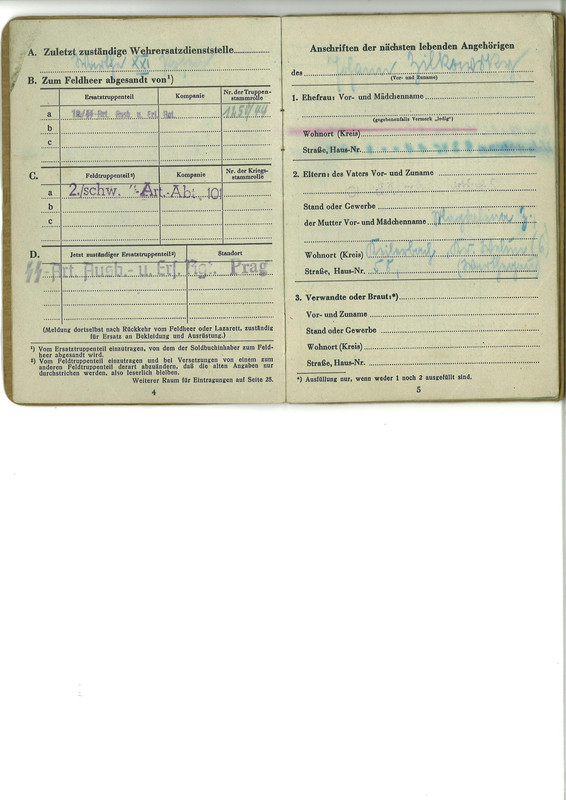 A. Zuletzt zuständige Wehrersatzdienststelle
XXI
B. Zum Feldheer abgesandt von¹)
Ersatztruppenteil
Kompanie
Nr. der Truppen-
stammrolle
a
Art. Ausb. u. Ers. Rgt.
b
c
C.
Feldtruppenteil²)
Kompanie
Nr. der Kriegs-
stammrolle
a 2./schw. SS-Art.-Abt. 101
b
c
D.
Jetzt zuständiger Ersatztruppenteil²)
Standort
SS-Art. Ausb.- u. Ers. Rgt. Prag
(Meldung dortselbst nach Rückkehr vom Feldheer oder Lazarett, zuständig
für Ersatz an Bekleidung und Ausrüstung.)
¹) Vom Ersatztruppenteil einzutragen, von dem der Soldbuchinhaber zum Feld-
heer abgesandt wird.
²) Vom Feldtruppenteil einzutragen und bei Versetzungen von einem zum
anderen Feldtruppenteil derart abzuändern, daß die alten Angaben nur
durchstrichen werden, also leserlich bleiben.
Weiterer Raum für Eintragungen auf Seite 25.
4
Anschriften der nächsten lebenden Angehörigen
des Johann
(Vor- und Zuname)
1. Ehefrau: Vor- und Mädchenname
(gegebenenfalls Vermerk „ledig“)
Wohnort (Kreis)
Straße, Haus-Nr.
2. Eltern: des Vaters Vor- und Zuname
Stand oder Gewerbe
der Mutter Vor- und Mädchenname
Wohnort (Kreis)
Straße, Haus-Nr.
3. Verwandte oder Braut:*)
Vor- und Zuname
Stand oder Gewerbe
Wohnort (Kreis)
Straße, Haus-Nr.
*) Ausfüllung nur, wenn weder 1 noch 2 ausgefüllt sind.
5